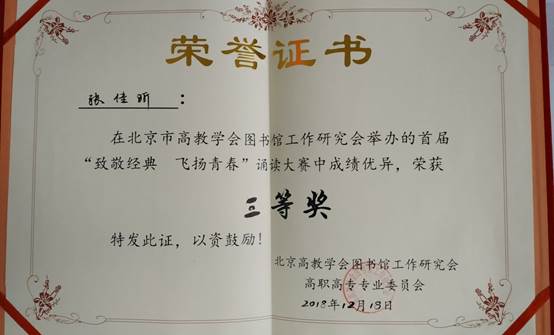 荣誉证书
张佳昕：
在北京市高教学会图书馆工作研究会举办的首届
“致敬经典 飞扬青春”诵读大赛中成绩优异，荣获
三等奖
特发此证，以资鼓励！
北京高教学会图书馆工作研究会
高职高专专业委员会
2018年12月13日